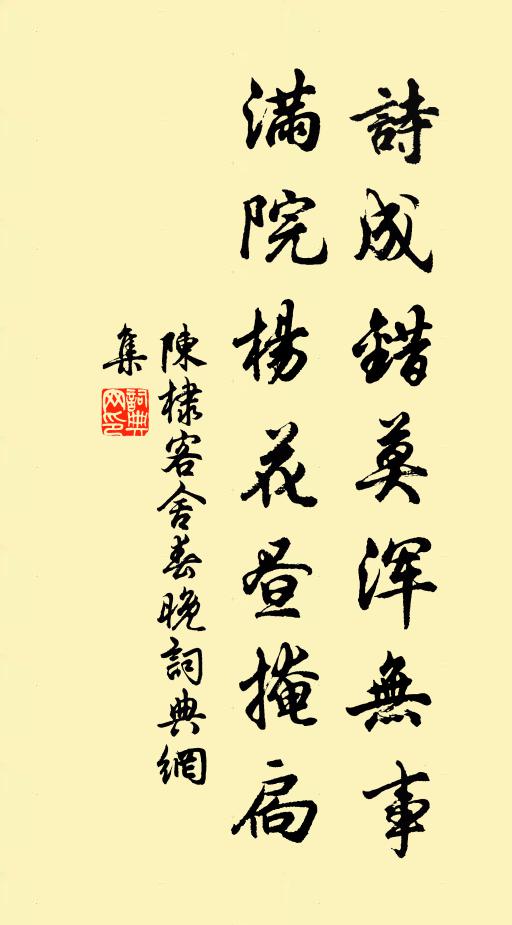 詩成錯莫渾無事
滿院楊花晝掩扃
陳棣客舍春晚詞典網
集
詞典
网印